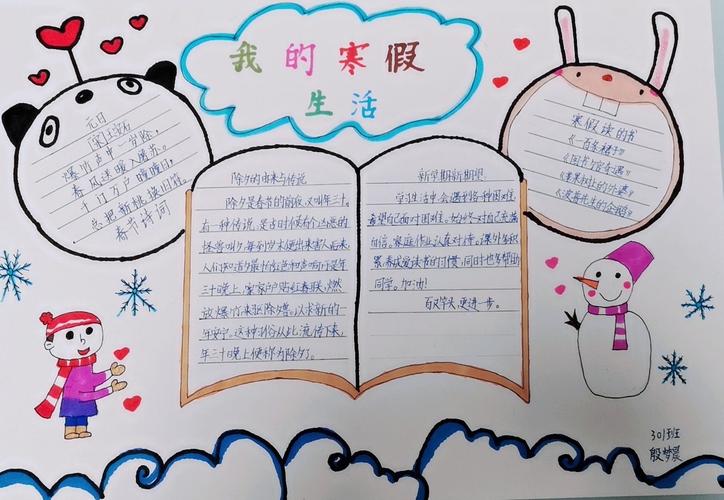 我的寒假
生活
元日
[宋]王安石
爆竹声中一岁除，
春风送暖入屠苏。
千门万户曈曈日，
总把新桃换旧符。
春节诗词
除夕的由来与传说
除夕是春节的前夜，又叫年三十。
有一种传说，是古时候有个凶恶的
怪兽叫夕，每到岁末便出来害人，后来，
人们知道夕最怕红色和声响，于是年
三十晚上，家家户户贴红春联，燃
放爆竹来驱除夕兽，以求新的一
年安宁。这种习俗从此流传下来，
年三十晚上便称为除夕。
新学期新期望
学习生活中会遇到各种困难，
希望自己面对困难，始终对自己充满
自信，家庭作业认真对待，课外多积
累，养成爱读书的习惯，同时也多帮助
同学。加油！
百尺竿头，更进一步。
寒假读的书
《一百条裙子》
《图书馆奇遇》
《苹果树上的外婆》
《波普先生的企鹅》
301班
殷梦晨